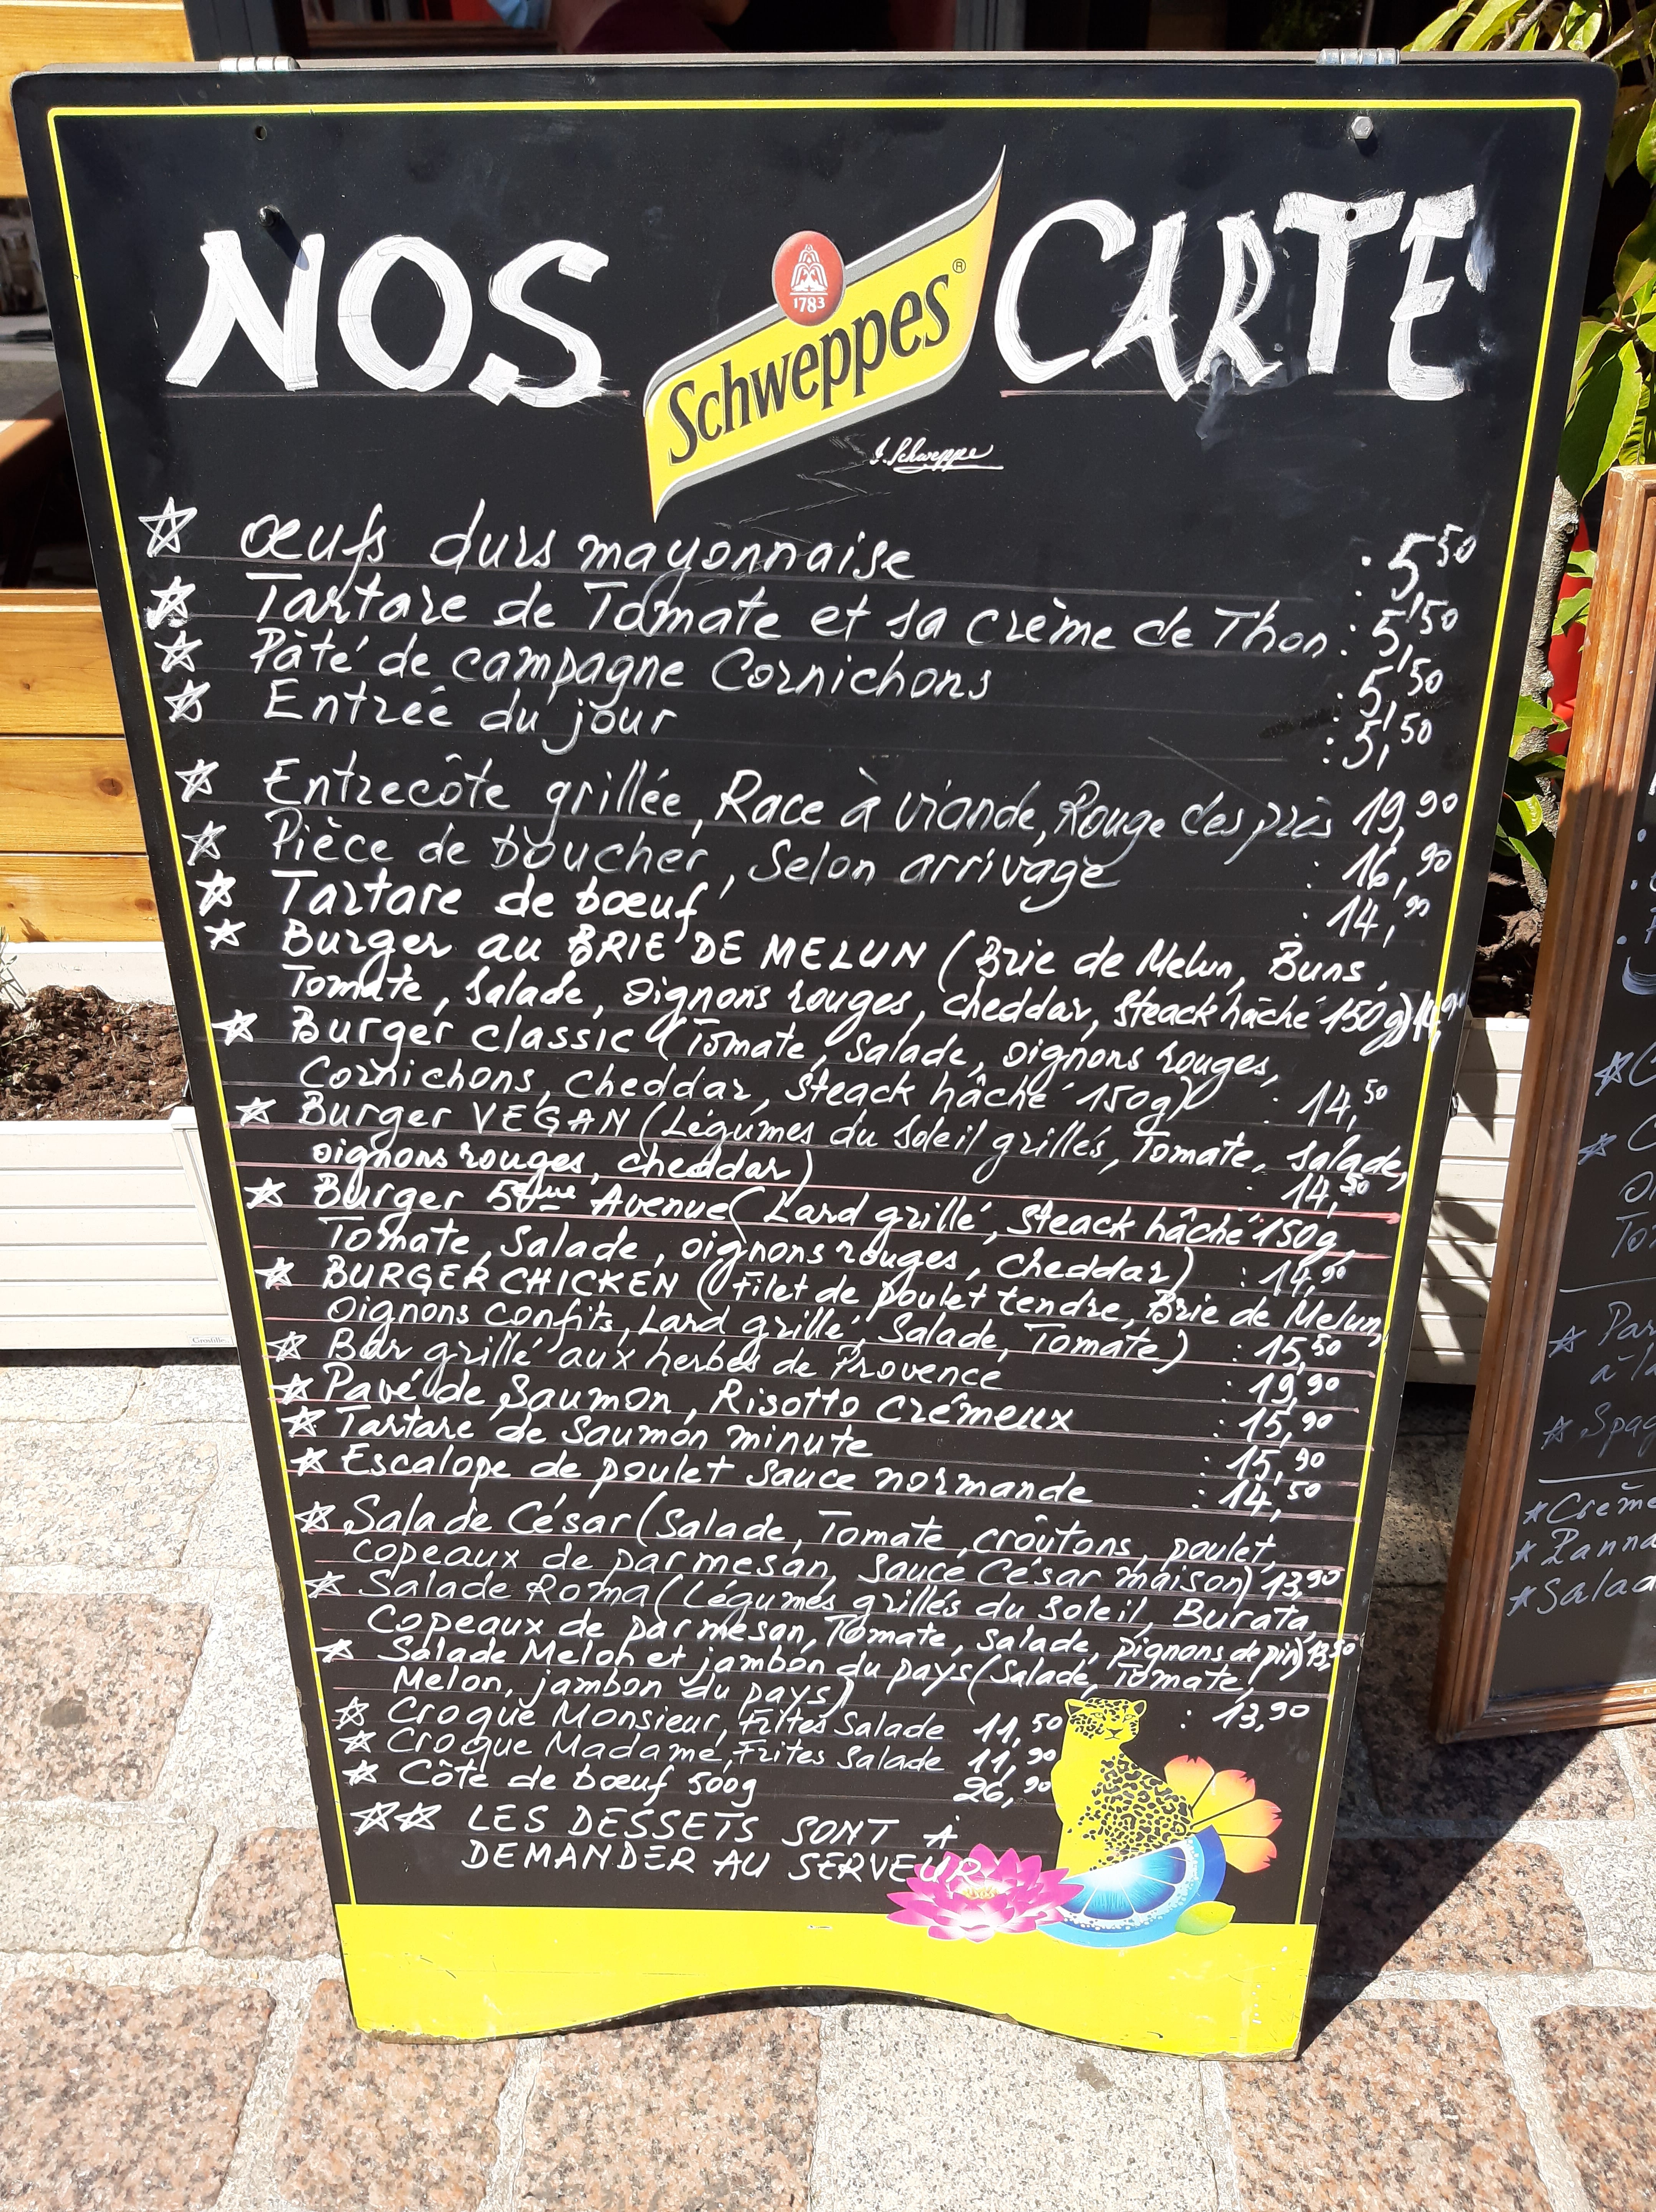 NOS CARTE
1783
Schweppes®
J. Schweppe
☆ œufs durs mayonnaise : 5,50
☆ Tartare de Tomate et sa crème de Thon : 5,50
☆ Pâté de campagne Cornichons : 5,50
☆ Entrée du jour : 5,50
☆ Entrecôte grillée, Race à viande, Rouge des près 19,90
☆ Pièce de boucher, Selon arrivage : 16,90
☆ Tartare de bœuf : 14,90
☆ Burger au BRIE DE MELUN (Brie de Melun, Buns,
Tomate, Salade, oignons rouges, cheddar, steack hâché 150g) 14,90
☆ Burger classic (Tomate, Salade, oignons rouges,
Cornichons, cheddar, steack hâché 150g) : 14,50
☆ Burger VEGAN (Légumes du Soleil grillés, Tomate, Salade,
oignons rouges, cheddar) : 14,50
☆ Burger 5ème Avenue (Lard grillé, steack hâché 150g,
Tomate, Salade, oignons rouges, cheddar) : 14,90
☆ BURGER CHICKEN (Filet de poulet tendre, Brie de Melun,
Oignons confits, Lard grillé, Salade, Tomate) : 15,50
☆ Bar grillé aux herbes de Provence : 19,90
☆ Pavé de Saumon, Risotto crémeux : 15,90
☆ Tartare de Saumon minute : 15,90
☆ Escalope de poulet sauce normande : 14,50
☆ Salade César (Salade, Tomate, croûtons, poulet,
copeaux de parmesan, Sauce César maison) 13,90
☆ Salade Roma (Légumes grillés du Soleil, Burata,
Copeaux de parmesan, Tomate, Salade, pignons de pin) 13,50
☆ Salade Melon et jambon du pays (Salade, Tomate,
Melon, jambon du pays) : 13,90
☆ Croque Monsieur, Frites Salade 11,50
☆ Croque Madame, Frites Salade 11,90
☆ Côte de bœuf 500g 26,90
☆☆ LES DESSETS SONT À
DEMANDER AU SERVEUR
☆ Par
à la
☆ Crème
☆ Panna
☆ Salad